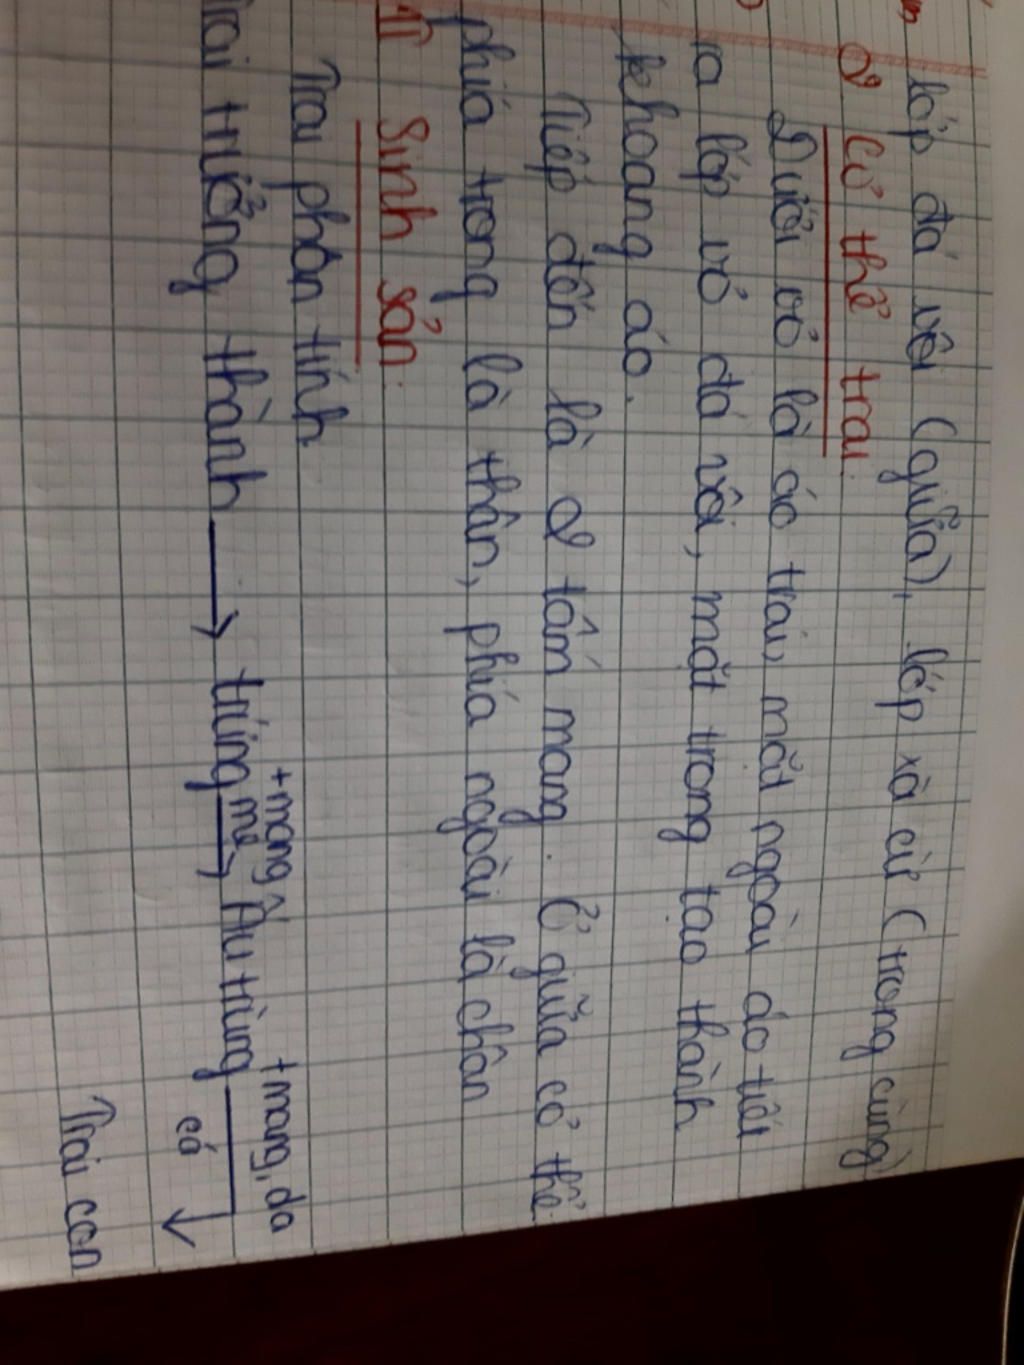 lớp đá vôi (giữa), lớp xà cừ (trong cùng)
2) Cơ thể trai:
Dưới vỏ là áo trai, mặt ngoài áo tiết
ra lớp vỏ đá vôi, mặt trong tạo thành
khoang áo.
Tiếp đến là 2 tấm mang. Ở giữa cơ thể:
phía trong là thân, phía ngoài là chân
Sinh sản:
Trai phân tính
Trai trưởng thành → trứng → Ấu trùng
+ mang mẹ
+ mang, da cá
Trai con